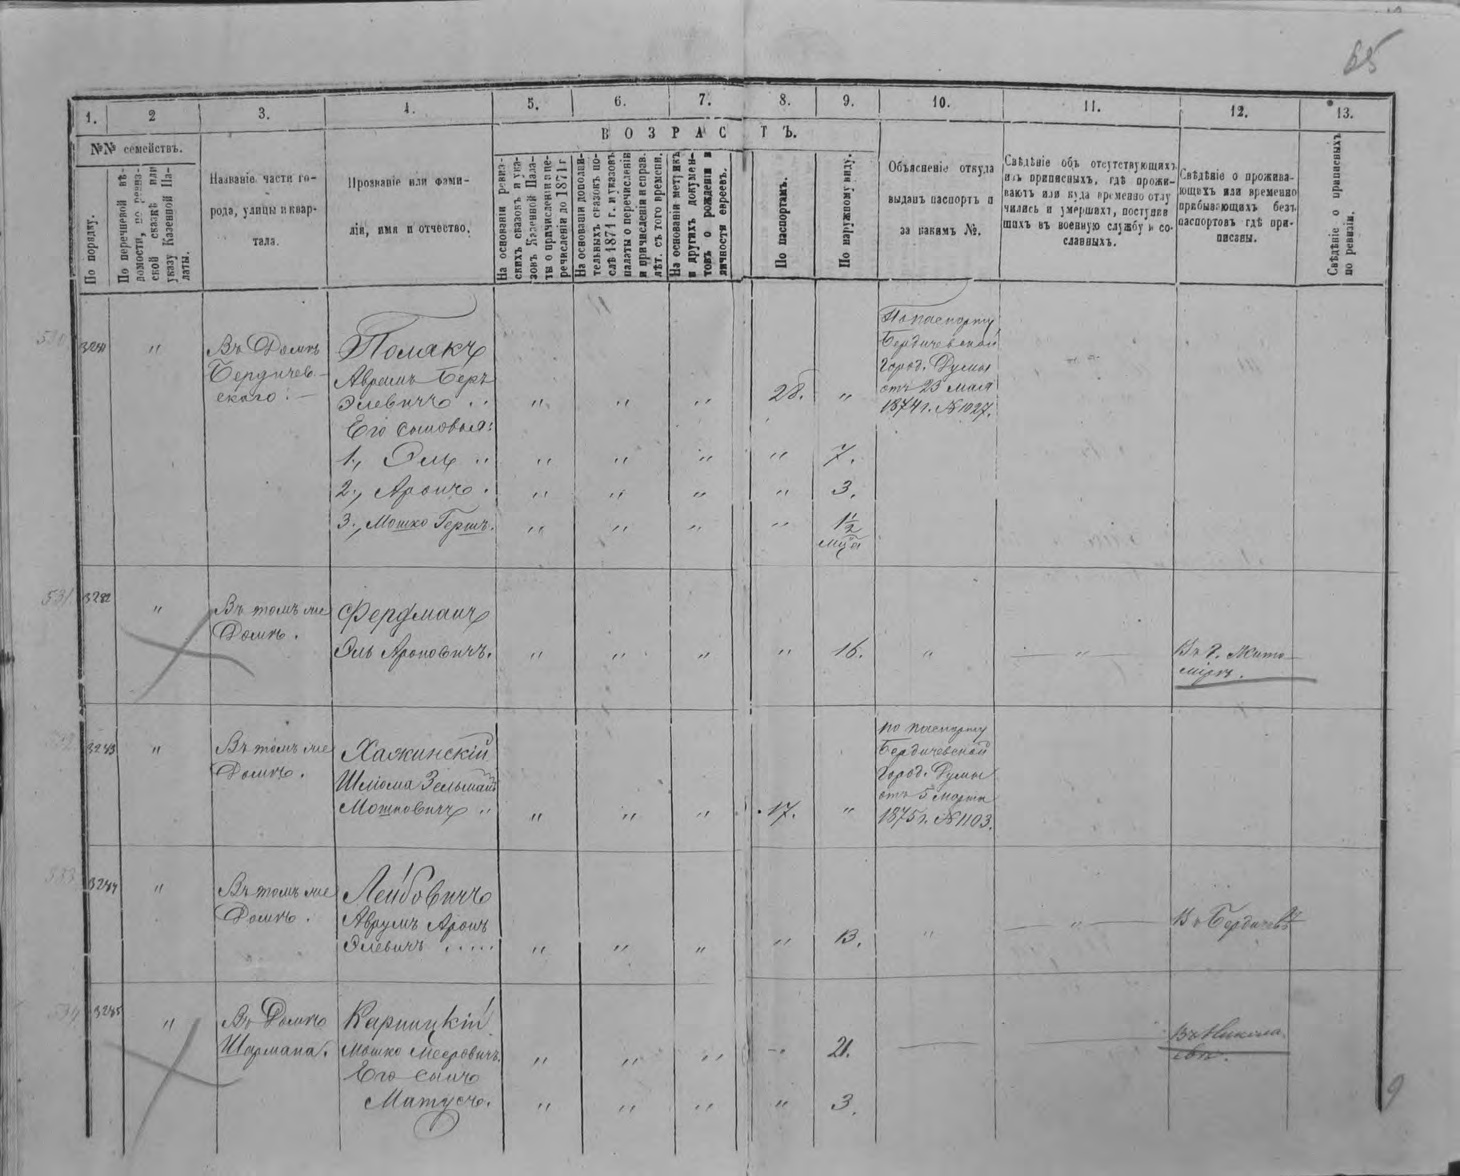 65
1. 2 3. 4. 5. 6. 7. 8. 9. 10. 11. 12. 13.
№№ семействъ.
В О З Р А С Т Ъ.
По порядку.
По перечневой вѣ-
домости, по ревиз-
ской сказкѣ или
указу Казенной Па-
латы.
Названіе части го-
рода, улицы и квар-
тала.
Прозваніе или фами-
лія, имя и отчество.
На основаніи ревиз-
скихъ сказокъ и ука-
зовъ Казенной Пала-
ты о причисленіи и пе-
речисленіи до 1871 г
На основаніи дополни-
тельныхъ сказокъ по-
слѣ 1871 г. и указовъ
палаты о перечисленіи
и причисленіи и исправ.
лѣт. съ того времени.
На основаніи метрикъ
и другихъ докумен-
товъ о рожденіи и
личности евреевъ.
По паспортамъ.
По наружному виду.
Объясненіе откуда
выданъ паспортъ и
за какимъ №.
Свѣдѣніе объ отсутствующихъ
изъ приписныхъ, гдѣ прожи-
ваютъ или куда временно отлу
чились и умершихъ, поступив
шихъ въ военную службу и со-
сланныхъ.
Свѣдѣніе о прожива-
ющихъ или временно
прибывающихъ безъ
паспортовъ гдѣ при-
писаны.
Свѣдѣніе о приписныхъ
по ревизіи.
" Въ Домѣ
Бердичев-
скаго.
Полякъ
Авромъ Беръ
Элевичъ " " " 28. "
По паспорту
Бердичевской
Город. Думы
отъ 23 мая
1874 г. № 1027.
Его сыновья:
1., Эль " " " " 7.
2., Аронъ " " " " 3.
3., Мошко Гершъ. " " " " 1½
мца
531 " Въ томъ же
Домѣ.
Фердманъ
Эль Ароновичъ. " " " " 16. " "
Въ г. Жито-
мірѣ.
3243 " Въ томъ же
Домѣ.
Хажинскій
Шліома Зельманъ
Мошковичъ " " " 17. "
по паспорту
Бердичевской
Город. Думы
отъ 5 марта
1875 г. № 1103.
3244 " Въ томъ же
Домѣ.
Лейбовичъ
Аврумъ Аронъ
Элевичъ " " " " 13. " "
Въ Бердичевѣ
3245 " Въ Домѣ
Шармана.
Карпицкій
Мошко Мееровичъ. " " " " 21.
Въ Никола-
евѣ.
Его сынъ
Матусъ. " " " " 3.
9